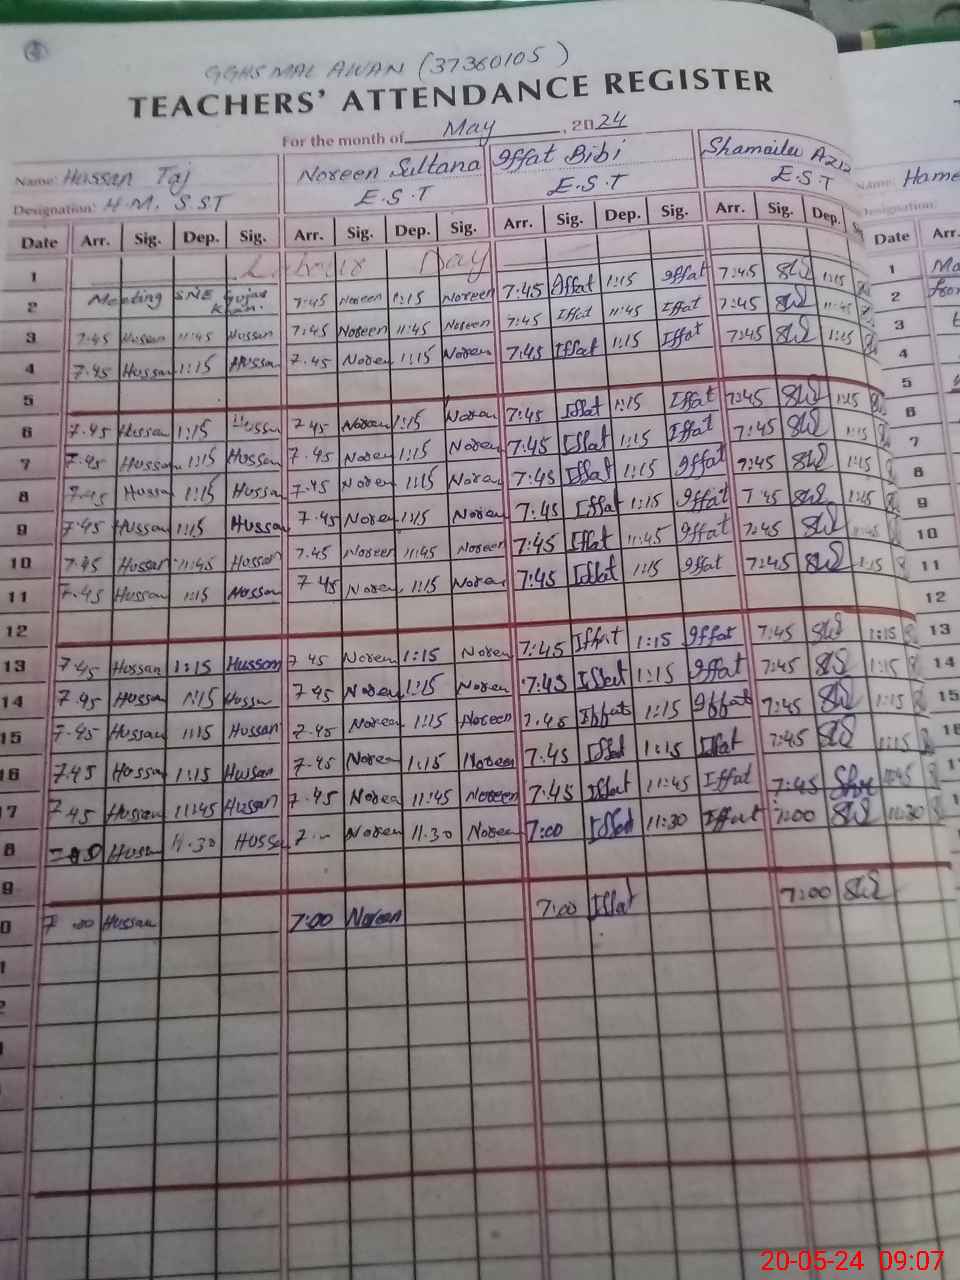 GGHS MAL AWAN (37360105)
TEACHERS' ATTENDANCE REGISTER
For the month of May, 2024
Name: Hassan Taj Noreen Sultana Iffat Bibi Shamaila Aziz Name: Hame
Designation: H.M. S.ST E.S.T E.S.T E.S.T Designation:
Date Arr. Sig. Dep. Sig. Arr. Sig. Dep. Sig. Arr. Sig. Dep. Sig. Arr. Sig. Dep. Date Arr.
1 Labour Day
2 Meeting SNE Gujar Khan. 7:45 Noreen 1:15 Noreen 7:45 Iffat 1:15 Iffat 7:45 1:15
3 7:45 Hassan 11:45 Hassan 7:45 Noreen 11:45 Noreen 7:45 Iffat 11:45 Iffat 7:45 11:45
4 7:45 Hassan 1:15 Hassan 7.45 Noreen 1:15 Noreen 7:45 Iffat 1:15 Iffat 7:45 1:15
5
6 7.45 Hassan 1:15 Hassan 7 45 Noreen 1:15 Noreen 7:45 Iffat 1:15 Iffat 7:45 1:15
7 7.45 Hassan 1:15 Hassan 7.45 Noreen 1:15 Noreen 7:45 Iffat 1:15 Iffat 7:45 1:15
8 7.45 Hassan 1:15 Hassan 7.45 Noreen 1:15 Noreen 7:45 Iffat 1:15 Iffat 7:45 1:15
9 7.45 Hassan 1:15 Hassan 7.45 Noreen 1:15 Noreen 7:45 Iffat 1:15 Iffat 7:45 1:15
10 7.45 Hassan 11:45 Hassan 7.45 Noreen 11:45 Noreen 7:45 Iffat 11:45 Iffat 7:45 11:45
11 7.45 Hassan 1:15 Hassan 7 45 Noreen 1:15 Noreen 7:45 Iffat 1:15 Iffat 7:45 1:15
12
13 7 45 Hassan 1:15 Hassan 7 45 Noreen 1:15 Noreen 7:45 Iffat 1:15 Iffat 7:45 1:15
14 7.45 Hassan 1:15 Hassan 7 45 Noreen 1:15 Noreen 7:45 Iffat 1:15 Iffat 7:45 1:15
15 7.45 Hassan 1:15 Hassan 7.45 Noreen 1:15 Noreen 7.45 Iffat 1:15 Iffat 7:45 1:15
16 7.45 Hassan 1:15 Hassan 7.45 Noreen 1:15 Noreen 7:45 Iffat 1:15 Iffat 7:45 1:15
17 7.45 Hassan 11:45 Hassan 7.45 Noreen 11:45 Noreen 7:45 Iffat 11:45 Iffat 7:45 11:45
8 Hassan 11.30 Hassan Noreen 11.30 Noreen 7:00 Iffat 11:30 Iffat 7:00 11:30
9
0 7:00 Hassan 7:00 Noreen 7:00 Iffat 7:00
20-05-24 09:07